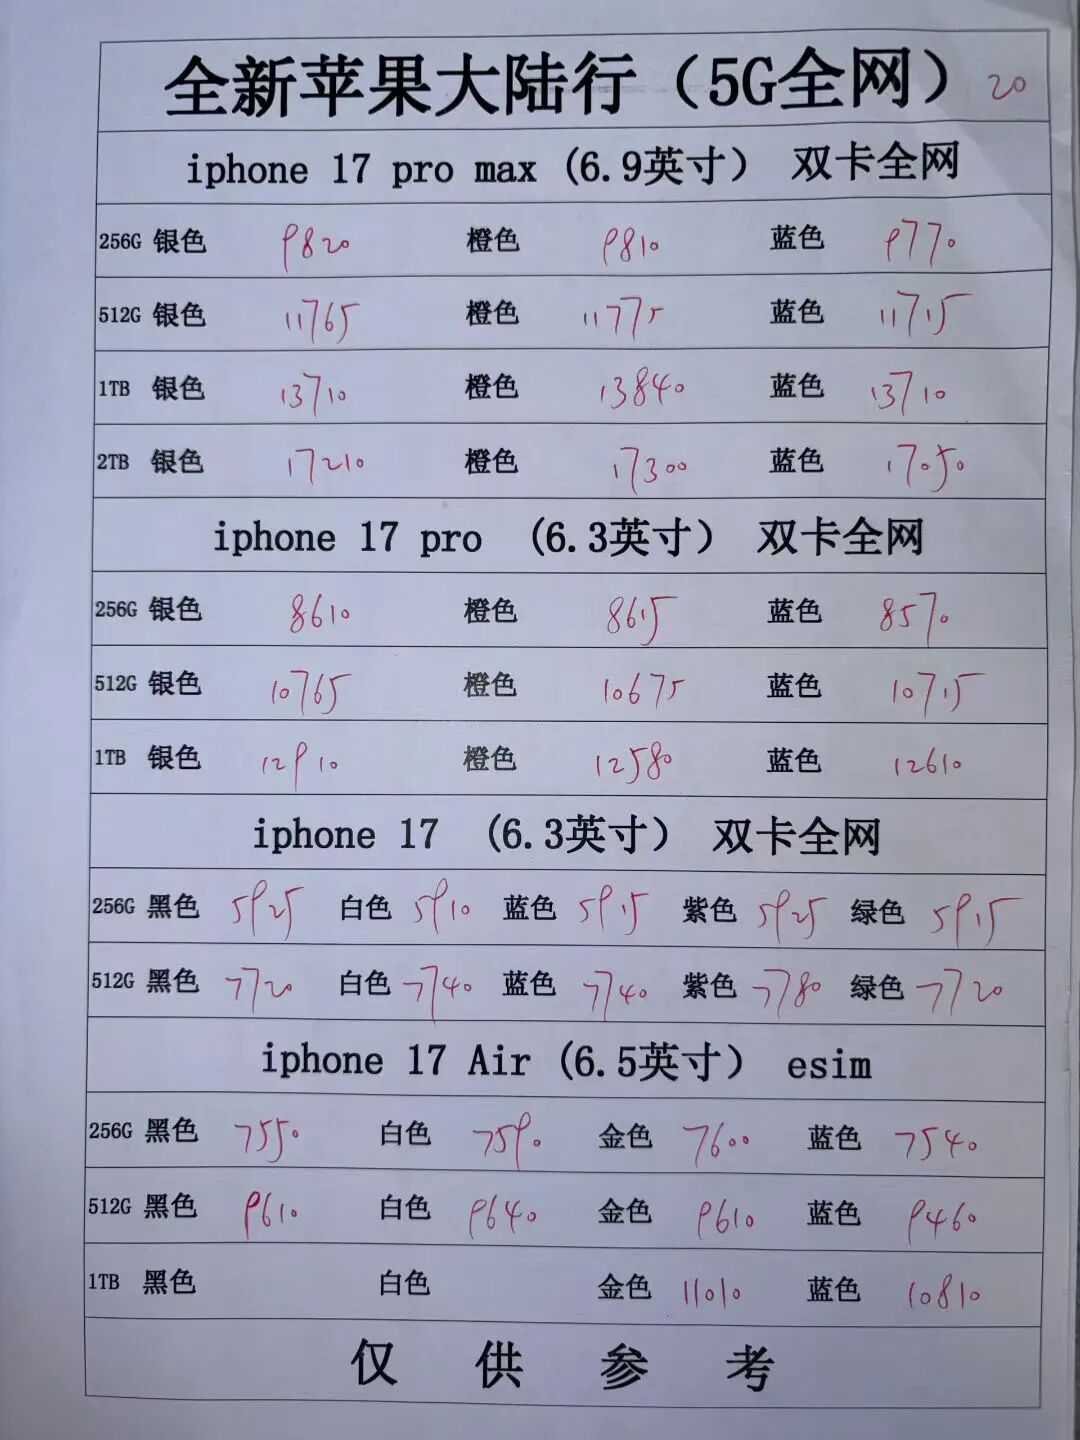 全新苹果大陆行（5G全网） 20
iphone 17 pro max (6.9英寸） 双卡全网
256G 银色 9820 橙色 9810 蓝色 9770
512G 银色 11765 橙色 11775 蓝色 11715
1TB 银色 13710 橙色 13840 蓝色 13710
2TB 银色 17210 橙色 17300 蓝色 17050
iphone 17 pro （6.3英寸） 双卡全网
256G 银色 8610 橙色 8615 蓝色 8570
512G 银色 10765 橙色 10675 蓝色 10715
1TB 银色 12910 橙色 12580 蓝色 12610
iphone 17 （6.3英寸） 双卡全网
256G 黑色 5925 白色 5910 蓝色 5915 紫色 5925 绿色 5915
512G 黑色 7720 白色 7740 蓝色 7740 紫色 7780 绿色 7720
iphone 17 Air (6.5英寸） esim
256G 黑色 7550 白色 7590 金色 7600 蓝色 7540
512G 黑色 9610 白色 9640 金色 9610 蓝色 9460
1TB 黑色 白色 金色 11010 蓝色 10810
仅 供 参 考